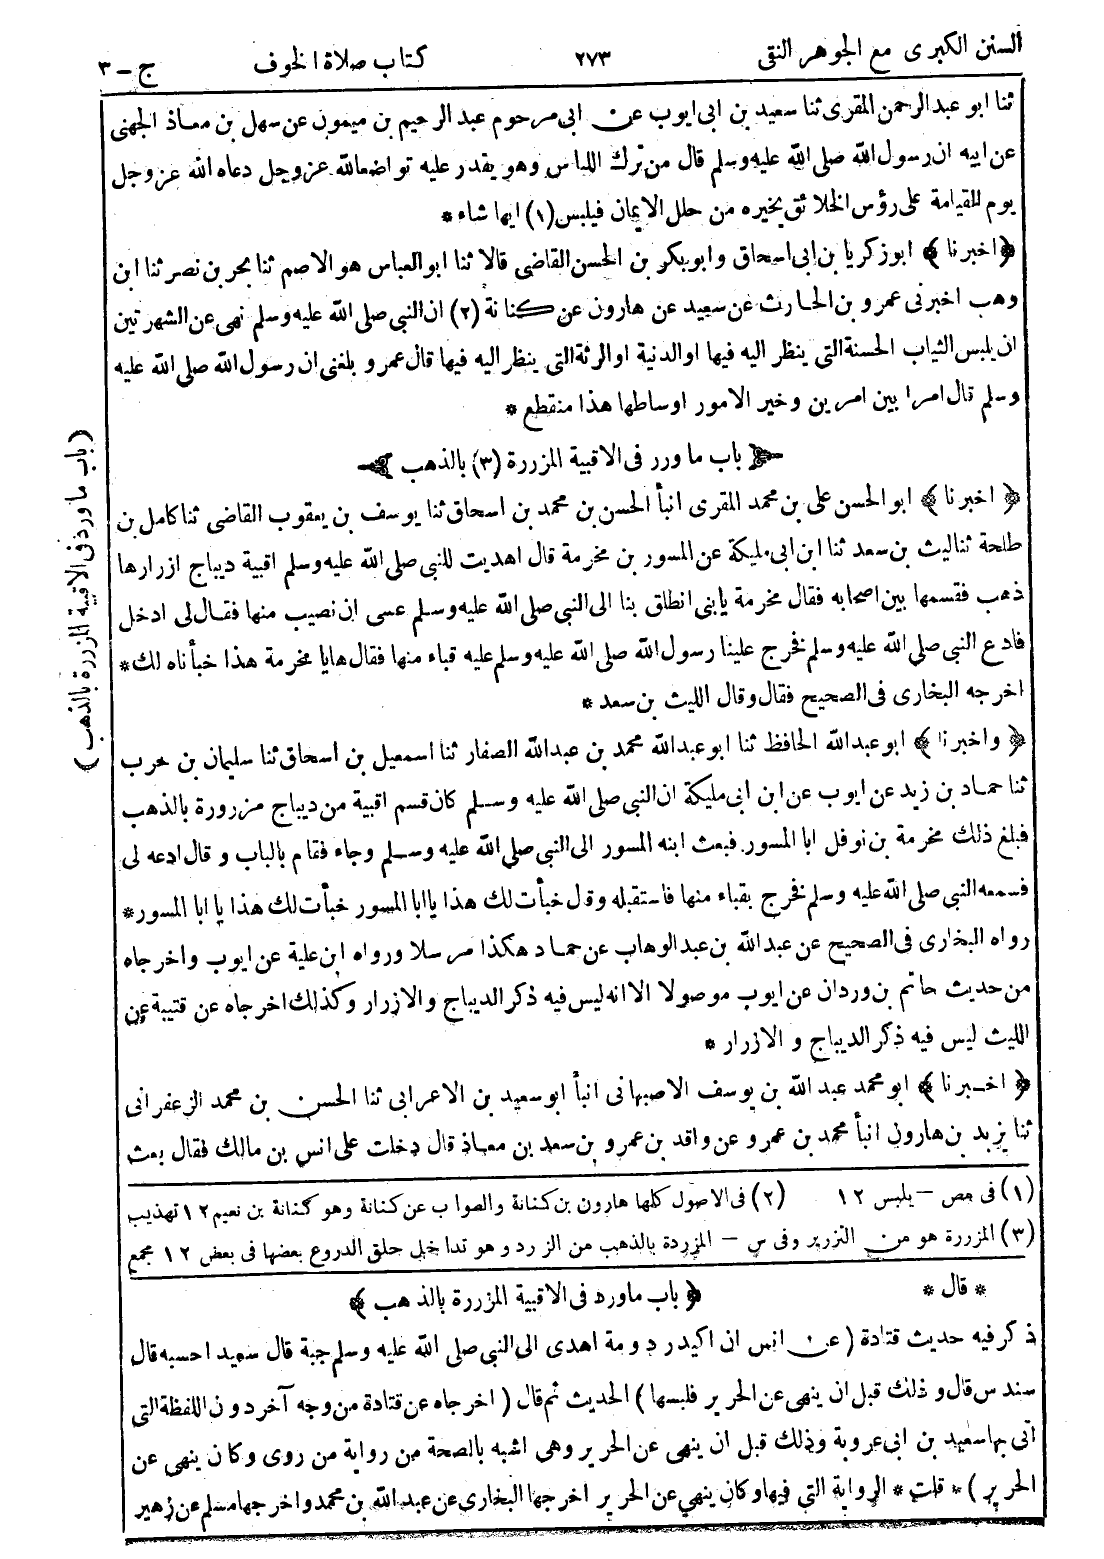 السنن الكبرى مع الجوهر النقى ٢٧٣ كتاب صلاة الخوف ج - ٣
ثنا ابو عبدالرحمن المقرى ثنا سعيد بن ابى ايوب عن ابى مرحوم عبد الرحيم بن ميمون عن سهل بن معاذ الجهنى
عن ابيه ان رسول الله صلى الله عليه وسلم قال من ترك اللباس وهو يقدر عليه تواضعا لله عز وجل دعاه الله عز وجل
يوم للقيامة على رؤس الخلائق يخيره من حلل الايمان فيلبس (١) ايها شاء *
﴿ اخبرنا ﴾ ابو زكريا بن ابى اسحاق وابوبكر بن الحسن القاضى قالا ثنا ابو العباس هو الاصم ثنا بحر بن نصر ثنا ابن
وهب اخبرنى عمرو بن الحارث عن سعيد عن هارون عن كنانة (٢) ان النبى صلى الله عليه وسلم نهى عن الشهرتين
ان يلبس الثياب الحسنة التى ينظر اليه فيها او الدنية او الرثة التى ينظر اليه فيها قال عمرو بلغنى ان رسول الله صلى الله عليه
وسلم قال امرا بين امرين وخير الامور اوساطها هذا منقطع *
باب ما ورر فى الاقبية المزررة (٣) بالذهب
﴿ اخبرنا ﴾ ابو الحسن على بن محمد المقرى انبأ الحسن بن محمد بن اسحاق ثنا يوسف بن يعقوب القاضى ثنا كامل بن
طلحة ثنا ليث بن سعد ثنا ابن ابى مليكة عن المسور بن مخرمة قال اهديت للنبى صلى الله عليه وسلم اقبية ديباج ازرارها
ذهب فقسمها بين اصحابه فقال مخرمة يابنى انطلق بنا الى النبى صلى الله عليه وسلم عسى ان نصيب منها فقال لى ادخل
فادع النبى صلى الله عليه وسلم فخرج علينا رسول الله صلى الله عليه وسلم عليه قباء منها فقال هايا مخرمة هذا خبأناه لك *
اخرجه البخارى فى الصحيح فقال وقال الليث بن سعد *
﴿ واخبرنا ﴾ ابو عبدالله الحافظ ثنا ابو عبدالله محمد بن عبدالله الصفار ثنا اسمعيل بن اسحاق ثنا سليمان بن حرب
ثنا حماد بن زيد عن ايوب عن ابن ابى مليكة ان النبى صلى الله عليه وسلم كان قسم اقبية من ديباج مزرورة بالذهب
فبلغ ذلك مخرمة بن نوفل ابا المسور فبعث ابنه المسور الى النبى صلى الله عليه وسلم وجاء فقام بالباب وقال ادعه لى
فسمعه النبى صلى الله عليه وسلم فخرج بقباء منها فاستقبله وقل خبأت لك هذا يا ابا المسور خبأت لك هذا يا ابا المسور *
رواه البخارى فى الصحيح عن عبدالله بن عبدالوهاب عن حماد هكذا مرسلا ورواه ابن علية عن ايوب واخرجاه
من حديث حاتم بن وردان عن ايوب موصولا الا انه ليس فيه ذكر الديباج والازرار وكذلك اخرجاه عن قتيبة عن
الليث ليس فيه ذكر الديباج و الازرار *
﴿ اخبرنا ﴾ ابو محمد عبد الله بن يوسف الاصبهانى انبأ ابو سعيد بن الاعرابى ثنا الحسن بن محمد الزعفرانى
ثنا يزيد بن هارون انبأ محمد بن عمرو عن واقد بن عمرو بن سعد بن معاذ قال دخلت على انس بن مالك فقال بعث
(١) فى مص - يلبس ١٢ (٢) فى الاصول كلها هارون بن كنانة والصواب عن كنانة وهو كنانة بن نعيم ١٢ تهذيب
(٣) المزررة هو من التزرير وفى س - المزردة بالذهب من الزرد وهو تداخل حلق الدروع بعضها فى بعض ١٢ مجمع
* قال * ﴿ باب ماورد فى الاقبية المزررة بالذهب ﴾
ذكر فيه حديث قتادة ( عن انس ان اكيدر دومة اهدى الى النبى صلى الله عليه وسلم جبة قال سعيد احسبه قال
سندس قال و ذلك قبل ان ينهى عن الحرير فلبسها ) الحديث ثم قال ( اخرجاه عن قتادة من وجه آخر دون اللفظة التى
اتى بها سعيد بن ابى عروبة وذلك قبل ان ينهى عن الحرير وهى اشبه بالصحة من رواية من روى وكان ينهى عن
الحرير ) * قلت * الرواية التى فيها وكان ينهى عن الحرير اخرجها البخارى عن عبد الله بن محمد واخرجها مسلم عن زهير
( باب ما ورد فى الاقبية المزررة بالذهب )